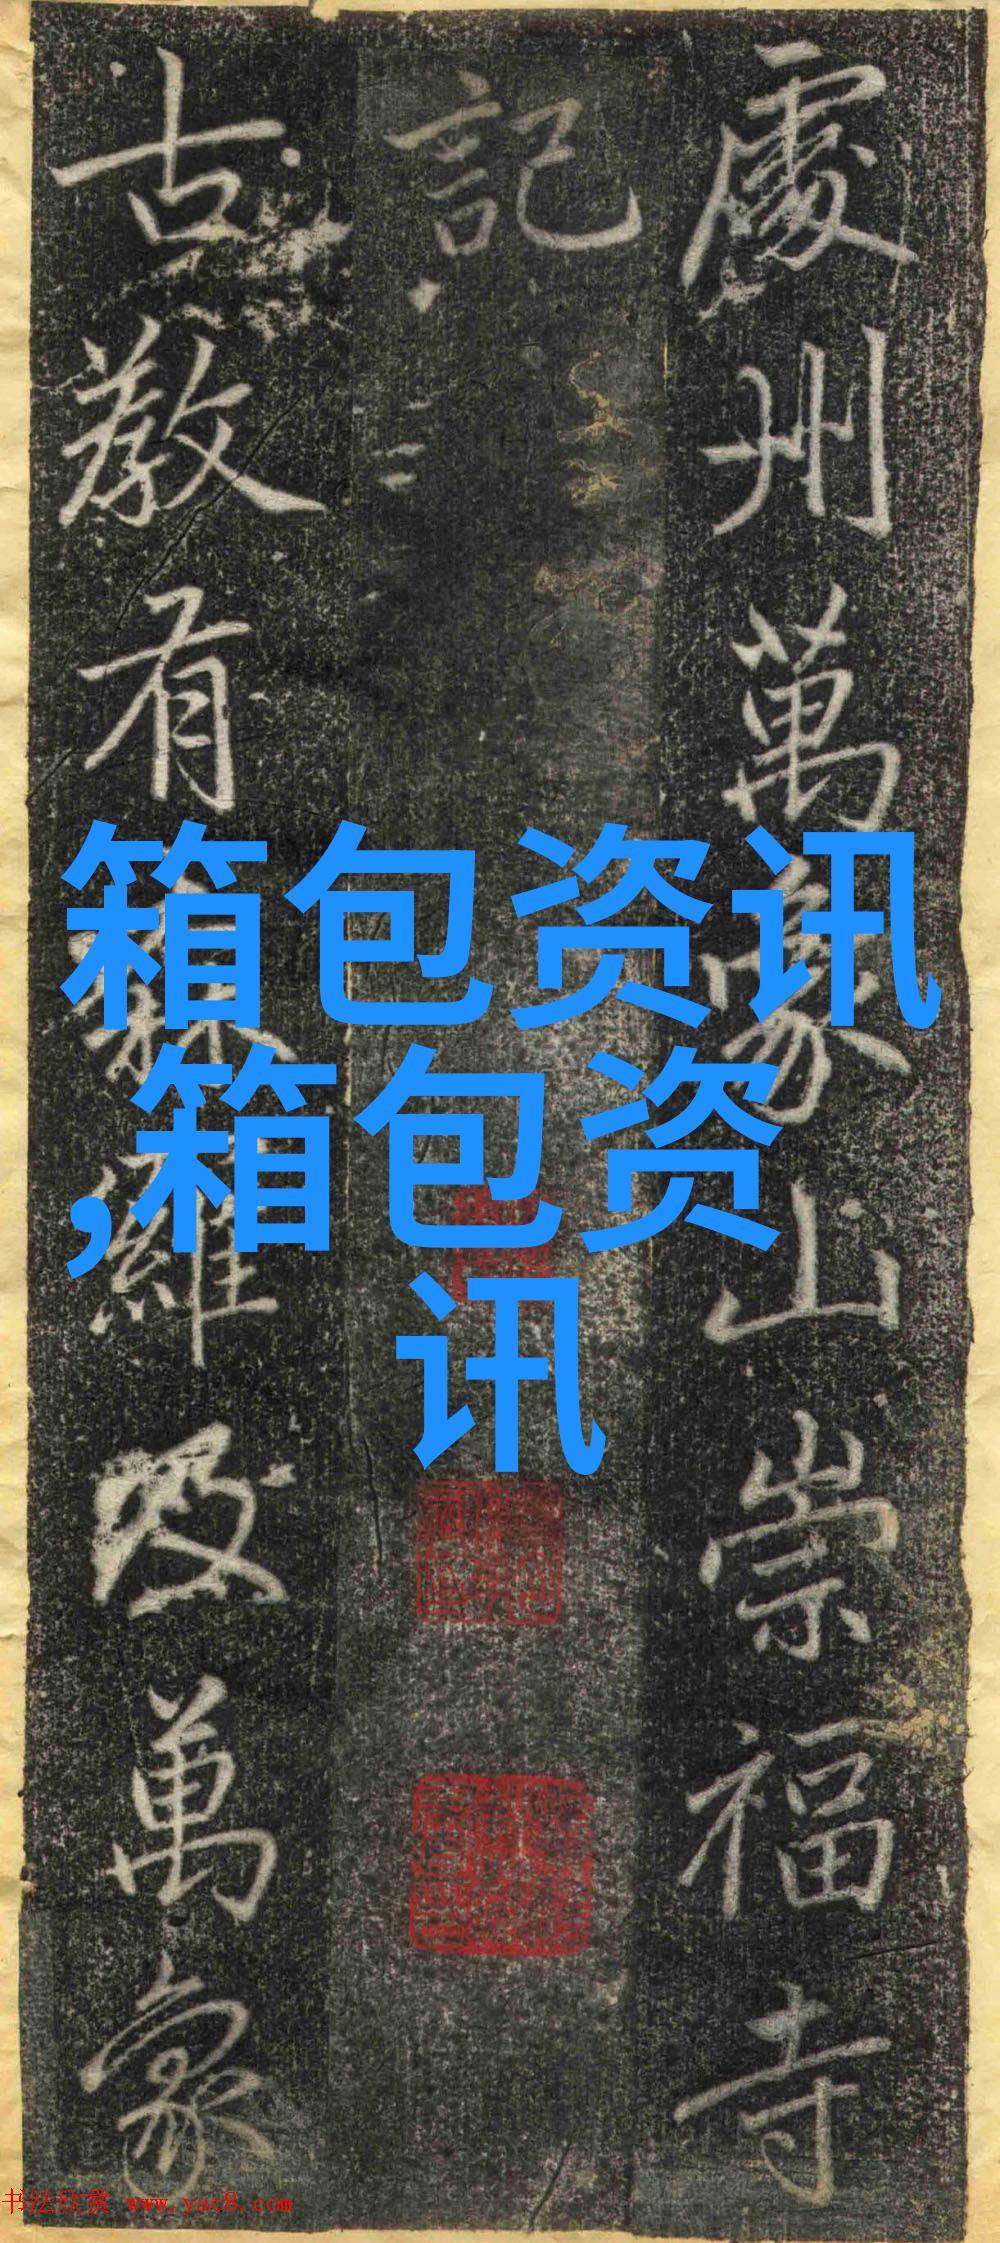 處州萬象山崇福寺
記
古教有森羅及萬象
箱包资讯
,箱包资
讯
书法欣赏 www.yac8.com